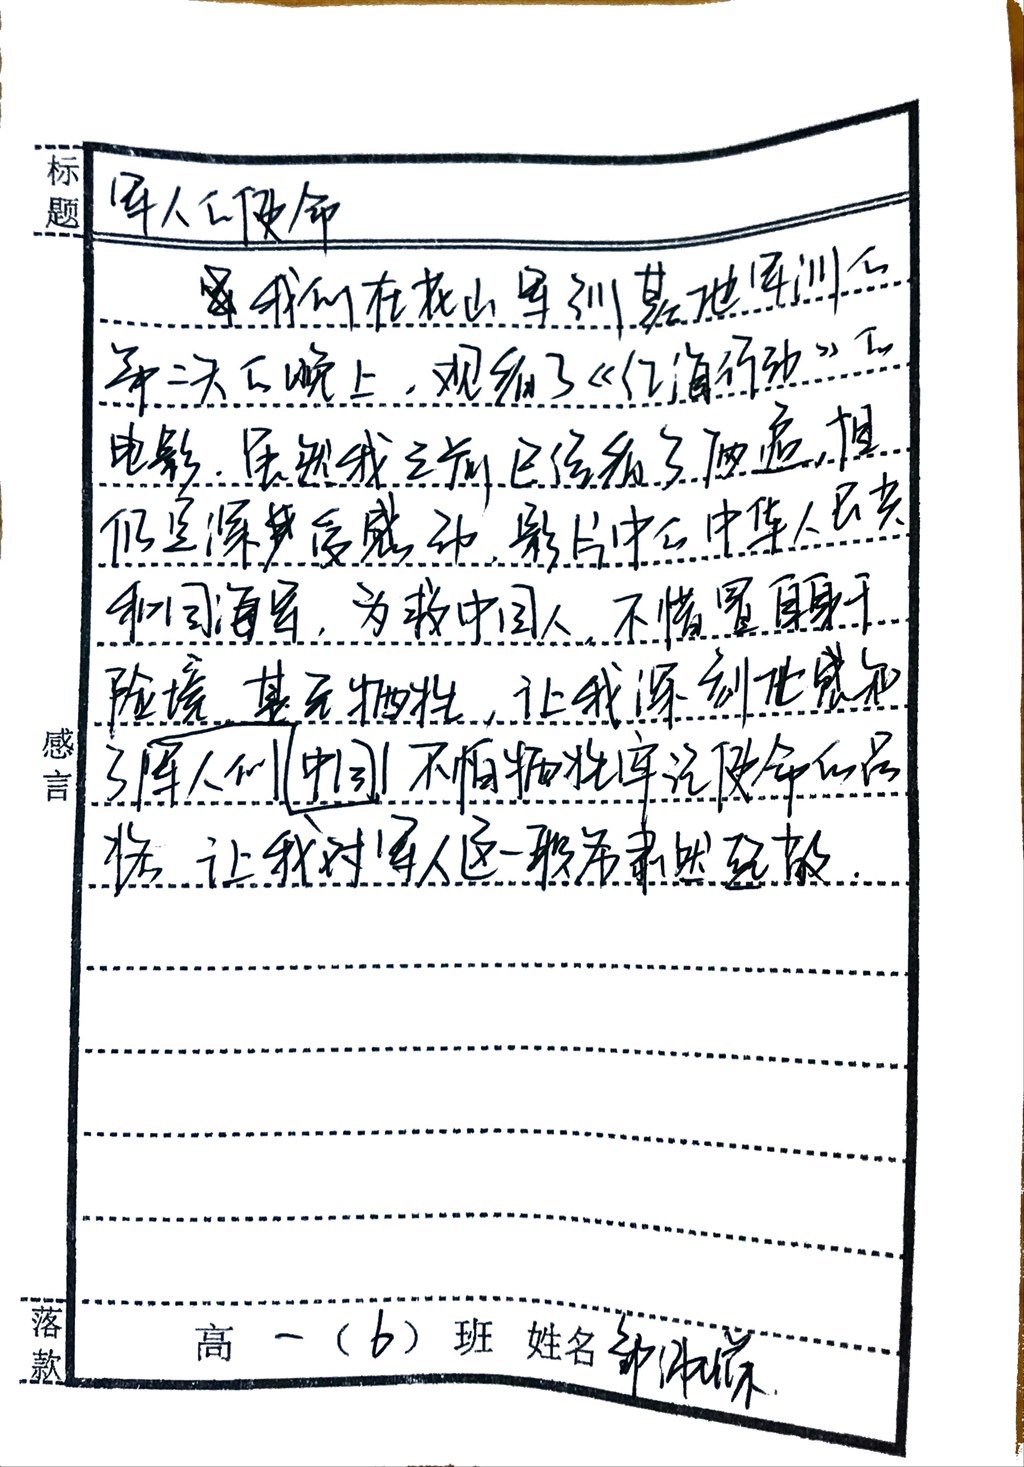 标题
军人的使命
我们在花山军训基地军训的
第二天的晚上,观看了《红海行动》的
电影.虽然我之前已经看了两遍,但
仍是深受感动,影片中的中华人民共
和国海军,为救中国人,不惜置自身于
险境,甚至牺牲,让我深刻地感知
了军人们中国不怕牺牲牢记使命的品
格 让我对军人这一职亦肃然起敬.
感言
落款
高一(6)班 姓名